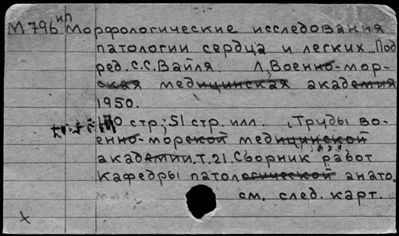 ип
М796 Морфологические исследования
патологии сердца и легких. Под
ред. С.С.Вайля. Л, Военно-мор-
ская медицинская академия
1950.
170 стр; 51 стр. илл. (Труды во-
енно-морской медицинской
академии, т.21. Сборник работ
кафедры патологической анато
см. след. карт.
х